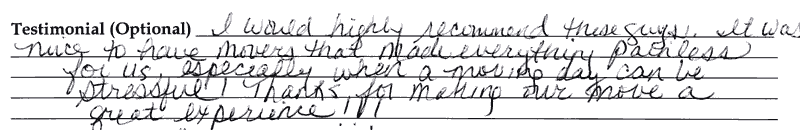 Testimonial (Optional) I would highly recommend these guys. It was
nice to have movers that made everything painless
for us, especially when a moving day can be
stressful! Thanks for making our move a
great experience!!!